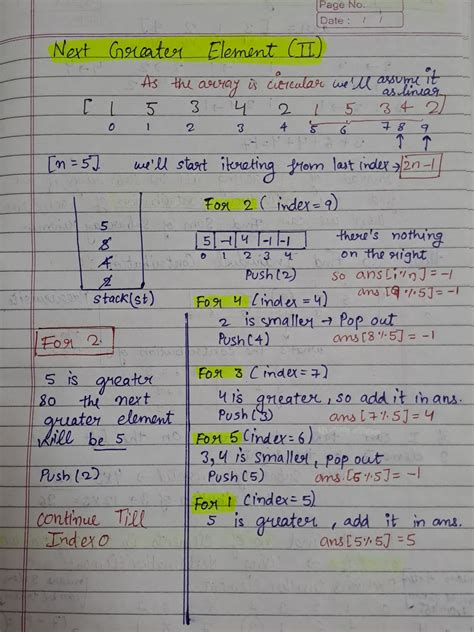 Page No.
Date : / /
Next Greater Element (II)
As the array is circular we'll assume it
as linear
[ 1 5 3 4 2 1 5 3 4 2 ]
0 1 2 3 4 5 6 7 8 9
[n = 5]. we'll start iterating from last index → 2n-1
For 2 ( index = 9)
5 -1 4 -1 -1
0 1 2 3 4
there's nothing
on the right
Push(2) so ans[i%n] = -1
ans [9%5] = -1
5
3
4
2
stack(st)
For 4 (index = 4)
2 is smaller → Pop out
Push(4) ans[8%5] = -1
For 3 ( index = 7)
4 is greater, so add it in ans.
Push(3) ans[7%5] = 4
For 5 (index = 6)
3,4 is smaller, pop out
Push(5) ans.[6%5] = -1
For 1 (index = 5)
5 is greater, add it in ans.
ans[5%5] = 5
For 2
5 is greater
so the next
greater element
will be 5
Push(2)
Continue Till
Index 0